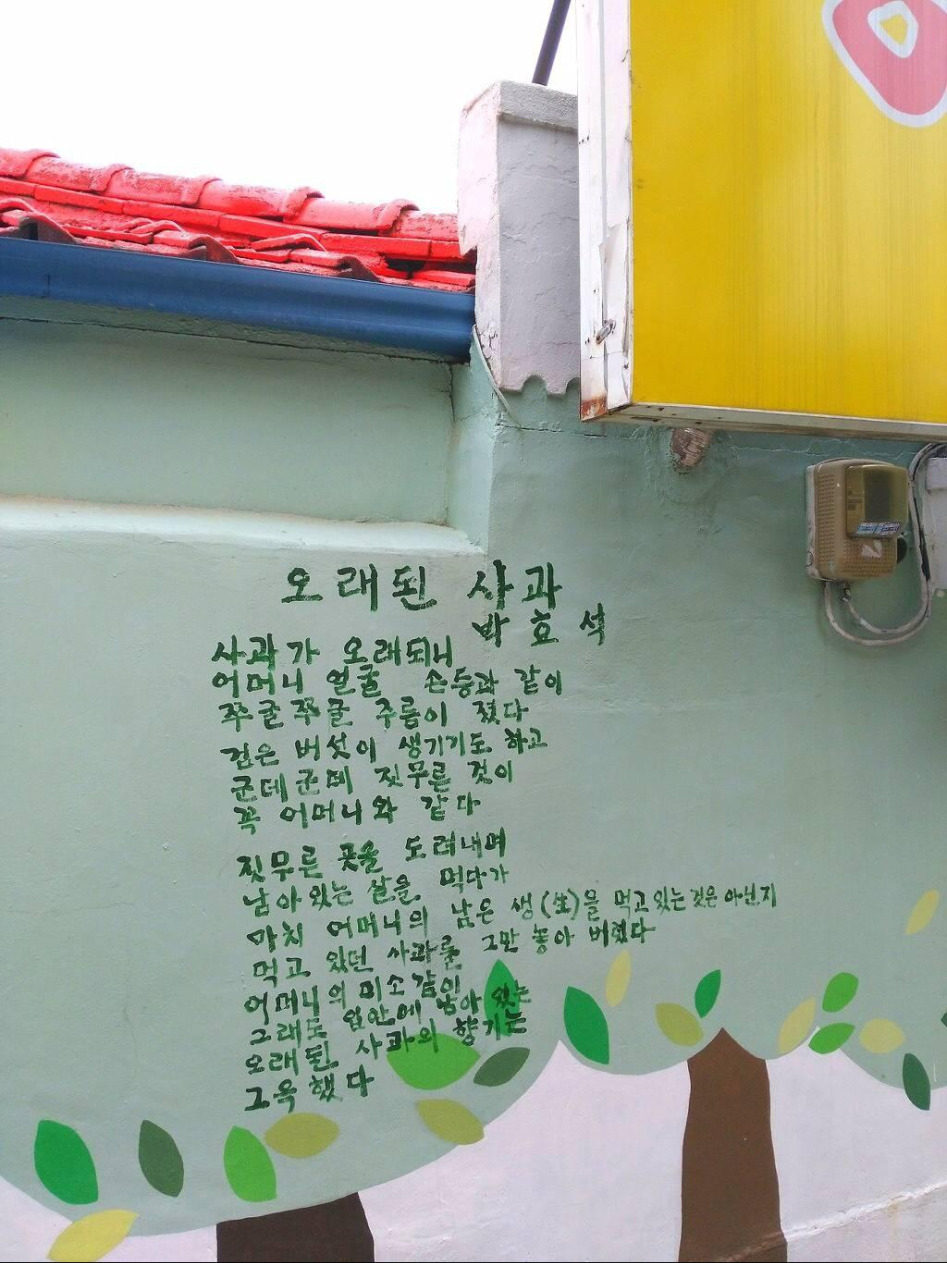 오래된 사과
박효석
사과가 오래되니
어머니 얼굴 손등과 같이
쭈굴쭈굴 주름이 졌다
검은 버섯이 생기기도 하고
군데군데 짓무른 것이
꼭 어머니와 같다
짓무른 곳을 도려내며
남아있는 살을 먹다가
마치 어머니의 남은 생(生)을 먹고있는것은 아닌지
먹고 있던 사과를 그만 놓아 버렸다
어머니의 미소같이
그래도 입안에 남아 있는
오래된 사과의 향기는
그윽했다